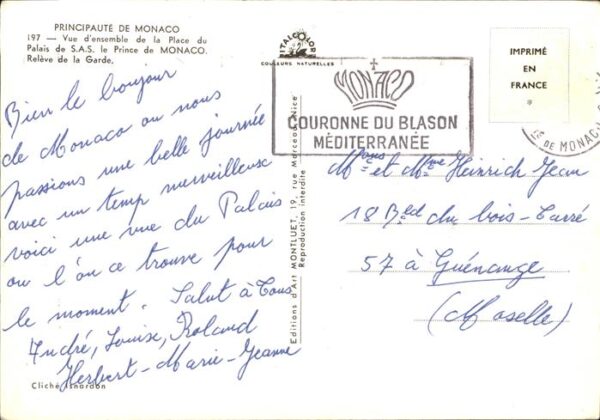 PRINCIPAUTÉ DE MONACO
197 — Vue d'ensemble de la Place du
Palais de S.A.S. le Prince de MONACO.
Relève de la Garde.
ITALCOLOR
COULEURS NATURELLES
IMPRIMÉ
EN
FRANCE
*
MONACO
COURONNE DU BLASON
MÉDITERRANÉE
DE MONACO
Bien le bonjour
de Monaco ou nous
passions une belle journée
avec un temp merveilleux
voici une vue du Palais
ou l'on ce trouve pour
le moment. Salut à Tous
André, Louise, Roland
Herbert-Marie-Jeanne
Cliché Inardon
Editions d'Art MONTLUET, 19, rue Marceau, Nice
Reproduction interdite
et Mme Heinrich Jean
18 Bd du bois-Carré
57 à Guénange
(Moselle)